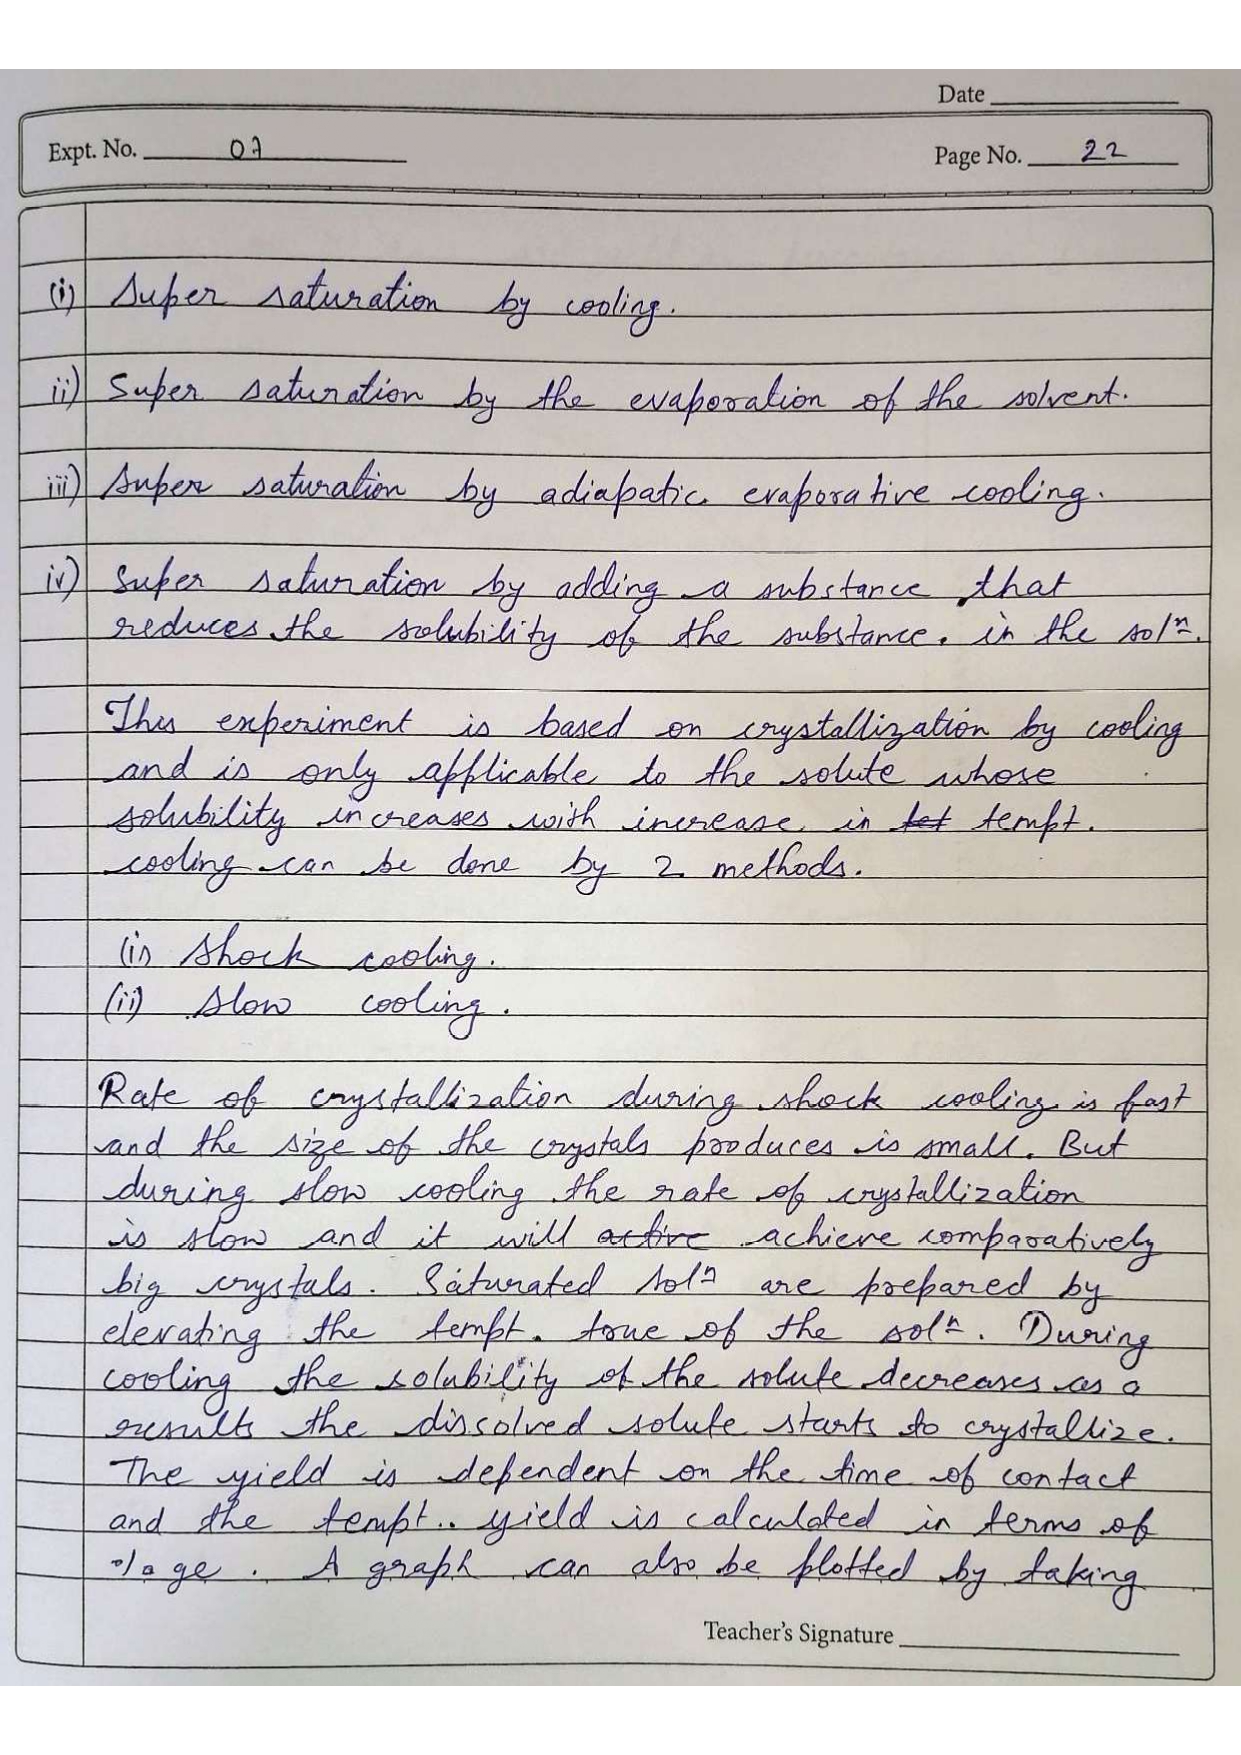 Date
Expt. No. 07
Page No. 22
(i) Super saturation by cooling.
ii) Super saturation by the evaporation of the solvent.
iii) Super saturation by adiapatic evaporative cooling.
iv) Super saturation by adding a substance that
reduces the solubility of the substance. in the solⁿ.
This experiment is based on crystallization by cooling
and is only applicable to the solute whose
solubility increases with increase in tempt.
cooling can be done by 2 methods.
(i) Shock cooling.
(ii) Slow cooling.
Rate of crystallization during shock cooling is fast
and the size of the crystals produces is small. But
during slow cooling the rate of crystallization
is slow and it will active achieve comparatively
big crystals. Saturated solⁿ are prepared by
elevating the tempt. of the solⁿ. During
cooling the solubility of the solute decreases as a
results the dissolved solute starts to crystallize.
The yield is dependent on the time of contact
and the tempt.. yield is calculated in terms of
%age. A graph can also be plotted by taking
Teacher's Signature